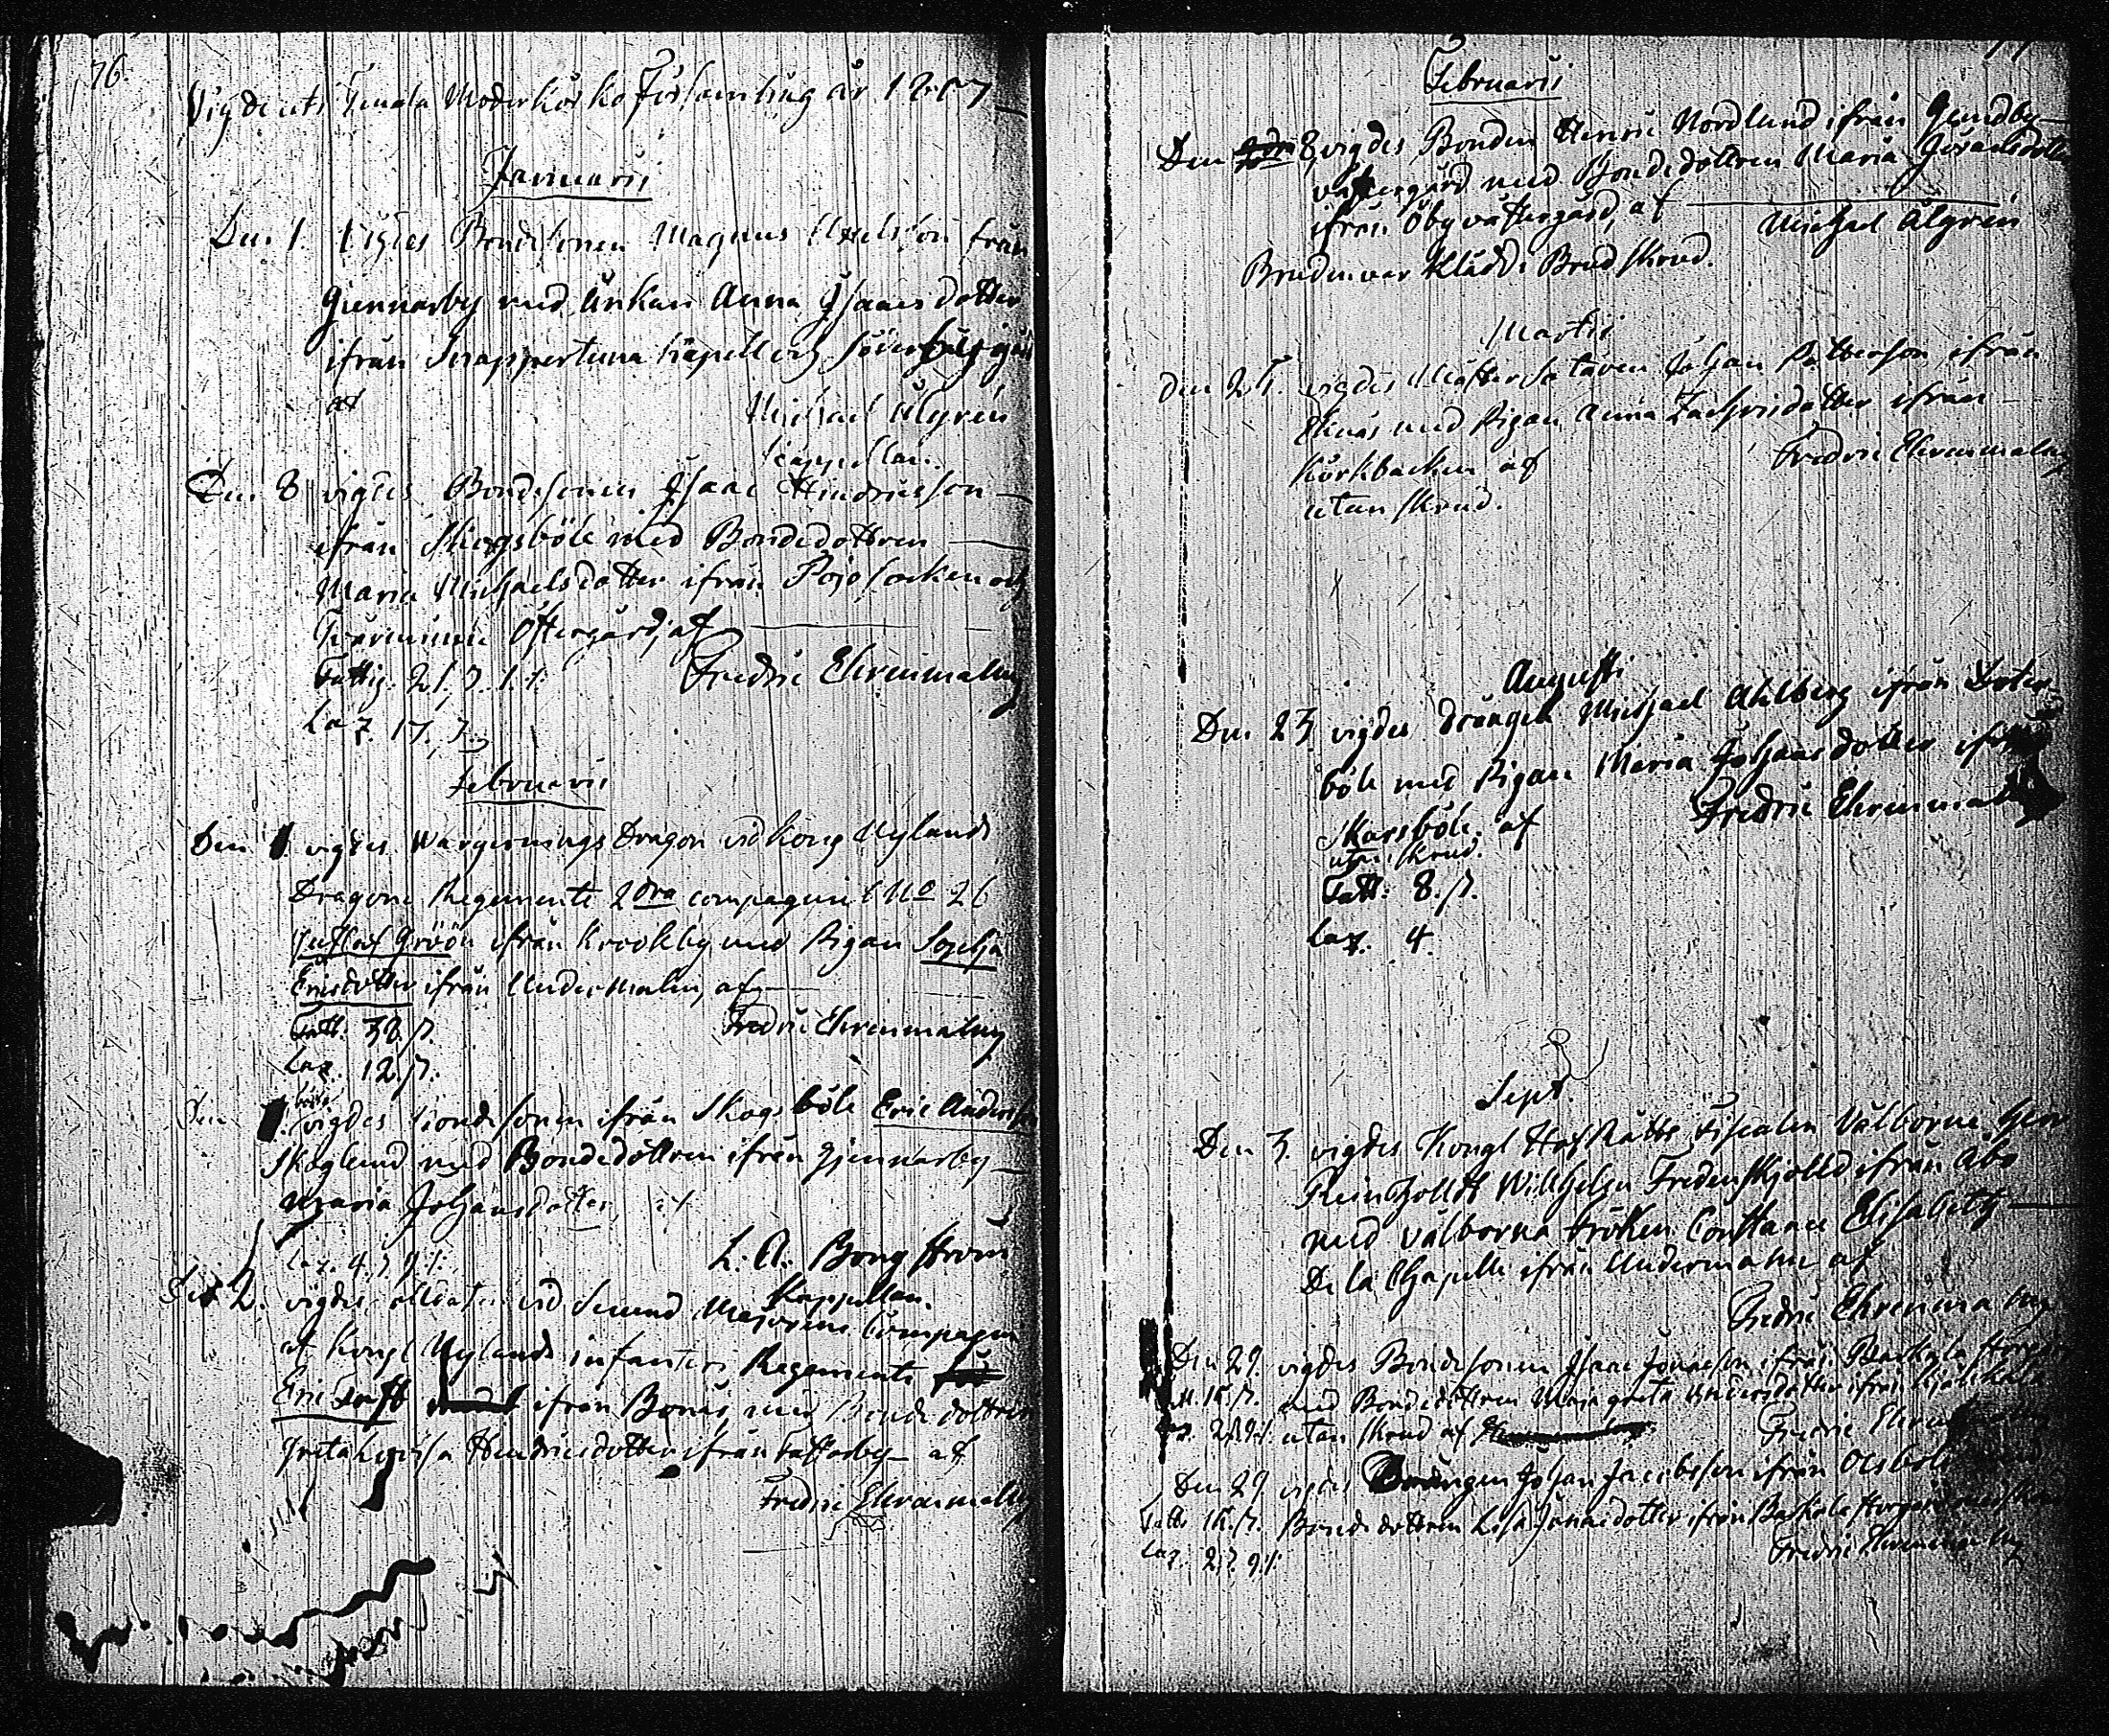 76.
Vigde uti Tenala Moderkörko Församling år 1807
Januarii
Den 1. vigdes Bondesonen Magnus Axelsson från
Gennarby med Änkan Anna Isaacsdotter
ifrån Snappertuna Kapell och
af Michael Algrén
Cappellan.
Den 8 vigdes Bondesonen Isaac Hindricsson
ifrån Skogsböle med Bondedottren
Maria Michaelsdotter ifrån Pojo socken och
Östergård, af
Fredric Ehrenmalm
Fattig. 21. ß. 1.
Laz. 17. ß
Februarii
Den 1. vigdes Wargerings Dragon vid Kong Nylands
Dragone Regemente 2dra compagnie No 26
Gustaf Gröön ifrån Krookby med Pigan Sophia
Ericsdotter ifrån Lindermalm, af
Fredric Ehrenmalm
Fatt. 38. ß.
Laz. 12. ß.
Den vigdes Bondesonen ifrån Skogsböle Eric Andersson
Skoglund med Bondedottren ifrån Gjennarby
Maria Johansdotter, af
L. A. Bongström
Kappellan.
Laz. 4. ß 9
Den 2. vigdes soldaten vid Second Majorens Compagni
af Kongl Nylands infanteri Regemente
Eric ifrån Bonäs med Bondedottren
Greta Lovisa Hindricsdotter ifrån af
Fredric Ehrenmalm
Februarii
Den 8 vigdes Bonden Henric Nordlund ifrån Gundby
västergård med Bondedottren Maria Israelsdotter
ifrån Öby västergård, af
Michael Algrén
Bruden var klädd i Brud skrud.
Martii
Den 25. vigdes Johan Petterson ifrån
Ekenäs med Pigan Anna Zachrisdotter ifrån
Körkbacken af Fredric Ehrenmalm
utan skrud.
Augusti
Den 23 vigdes drängen Michael Ahlberg ifrån
böle med Pigan Maria Johansdotter ifrån
Skarsböle. af Fredric Ehrenmalm
utan skrud.
Fatt: 8. ß.
Laz. 4.
Sept.
Den 3. vigdes Kongl Hof Rätts Fiscalen Välborne Herr
Reinholdt Wilhelm Fredenskjölld ifrån Åbo
med välborna fröken Constance Elisabeth
De la Chapelle ifrån Lindermalm af
Fredric Ehrenmalm
Den 29. vigdes Bondesonen Isaac Jonaeson ifrån Baskala Storgård
Fatt. 15. ß. med Bondedottren Maja greta Andersdotter ifrån
utan skrud af Fredric Ehrenmalm
Den 29 vigdes Drängen Johan Jacobsson ifrån Olsböle med
Fatt. 16. ß. Bondedottren Lisa Jonaedotter ifrån Baskala Storgård
Laz. 2 ß. 9 Fredric Ehrenmalm